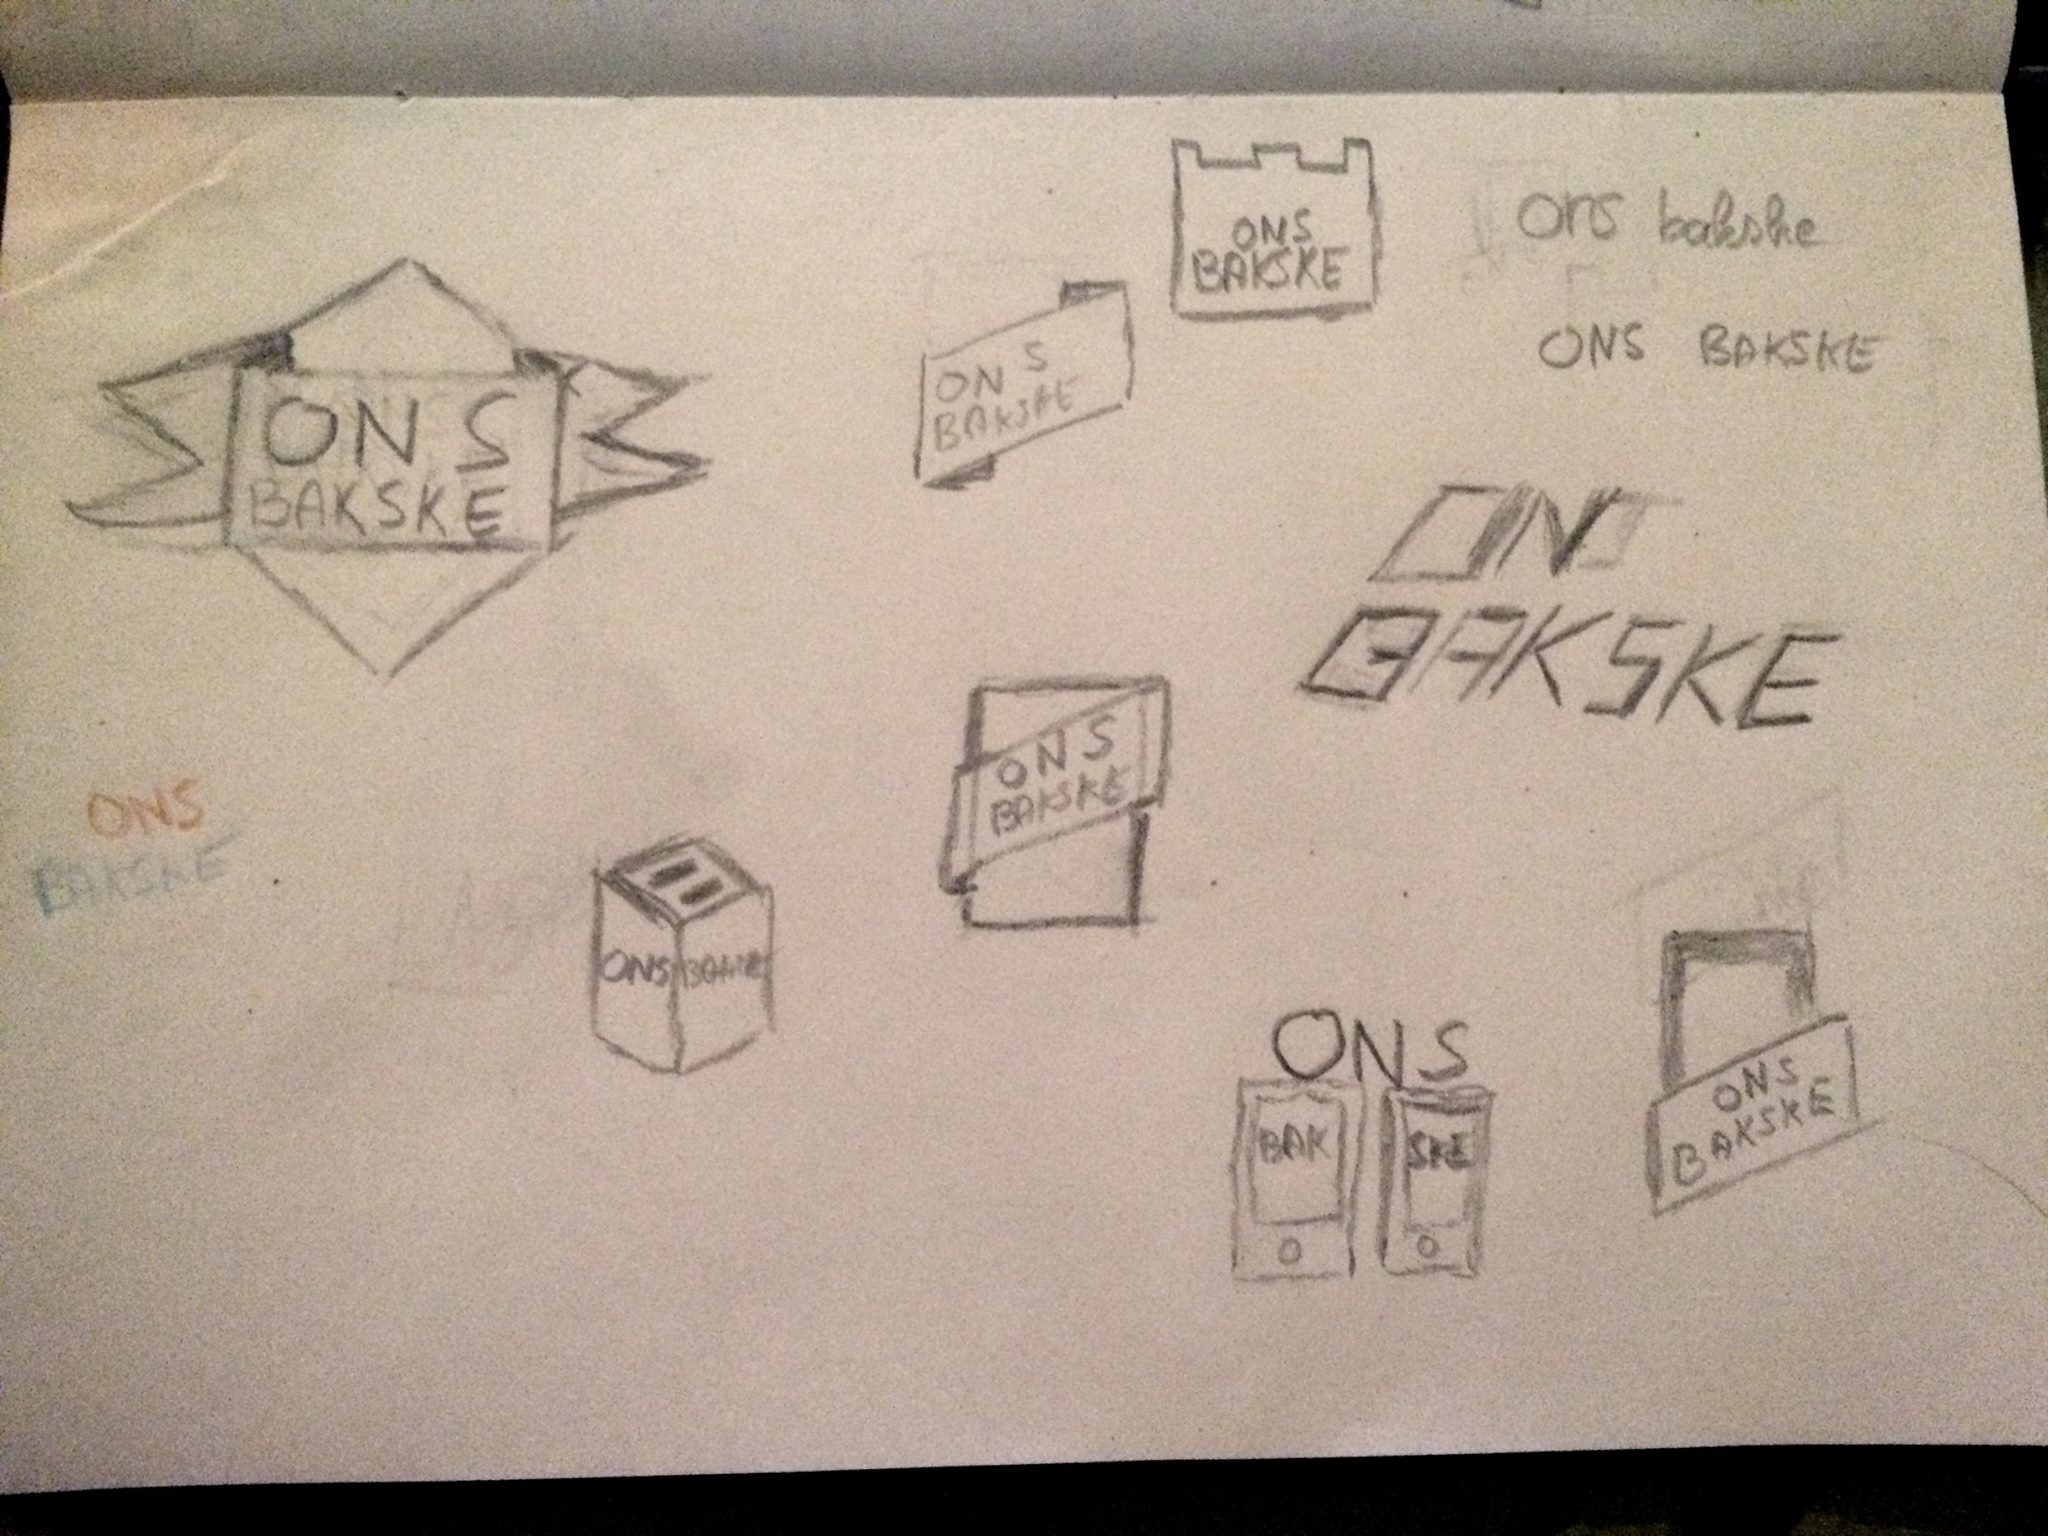 ONS
BAKSKE
ons bakske
ONS BAKSKE
ONS
BAKSKE
ONS
BAKSKE
ONS
BAKSKE
ONS
BAKSKE
ONS
BAKSKE
ONS
ONS
BAK SKE
ONS
BAKSKE